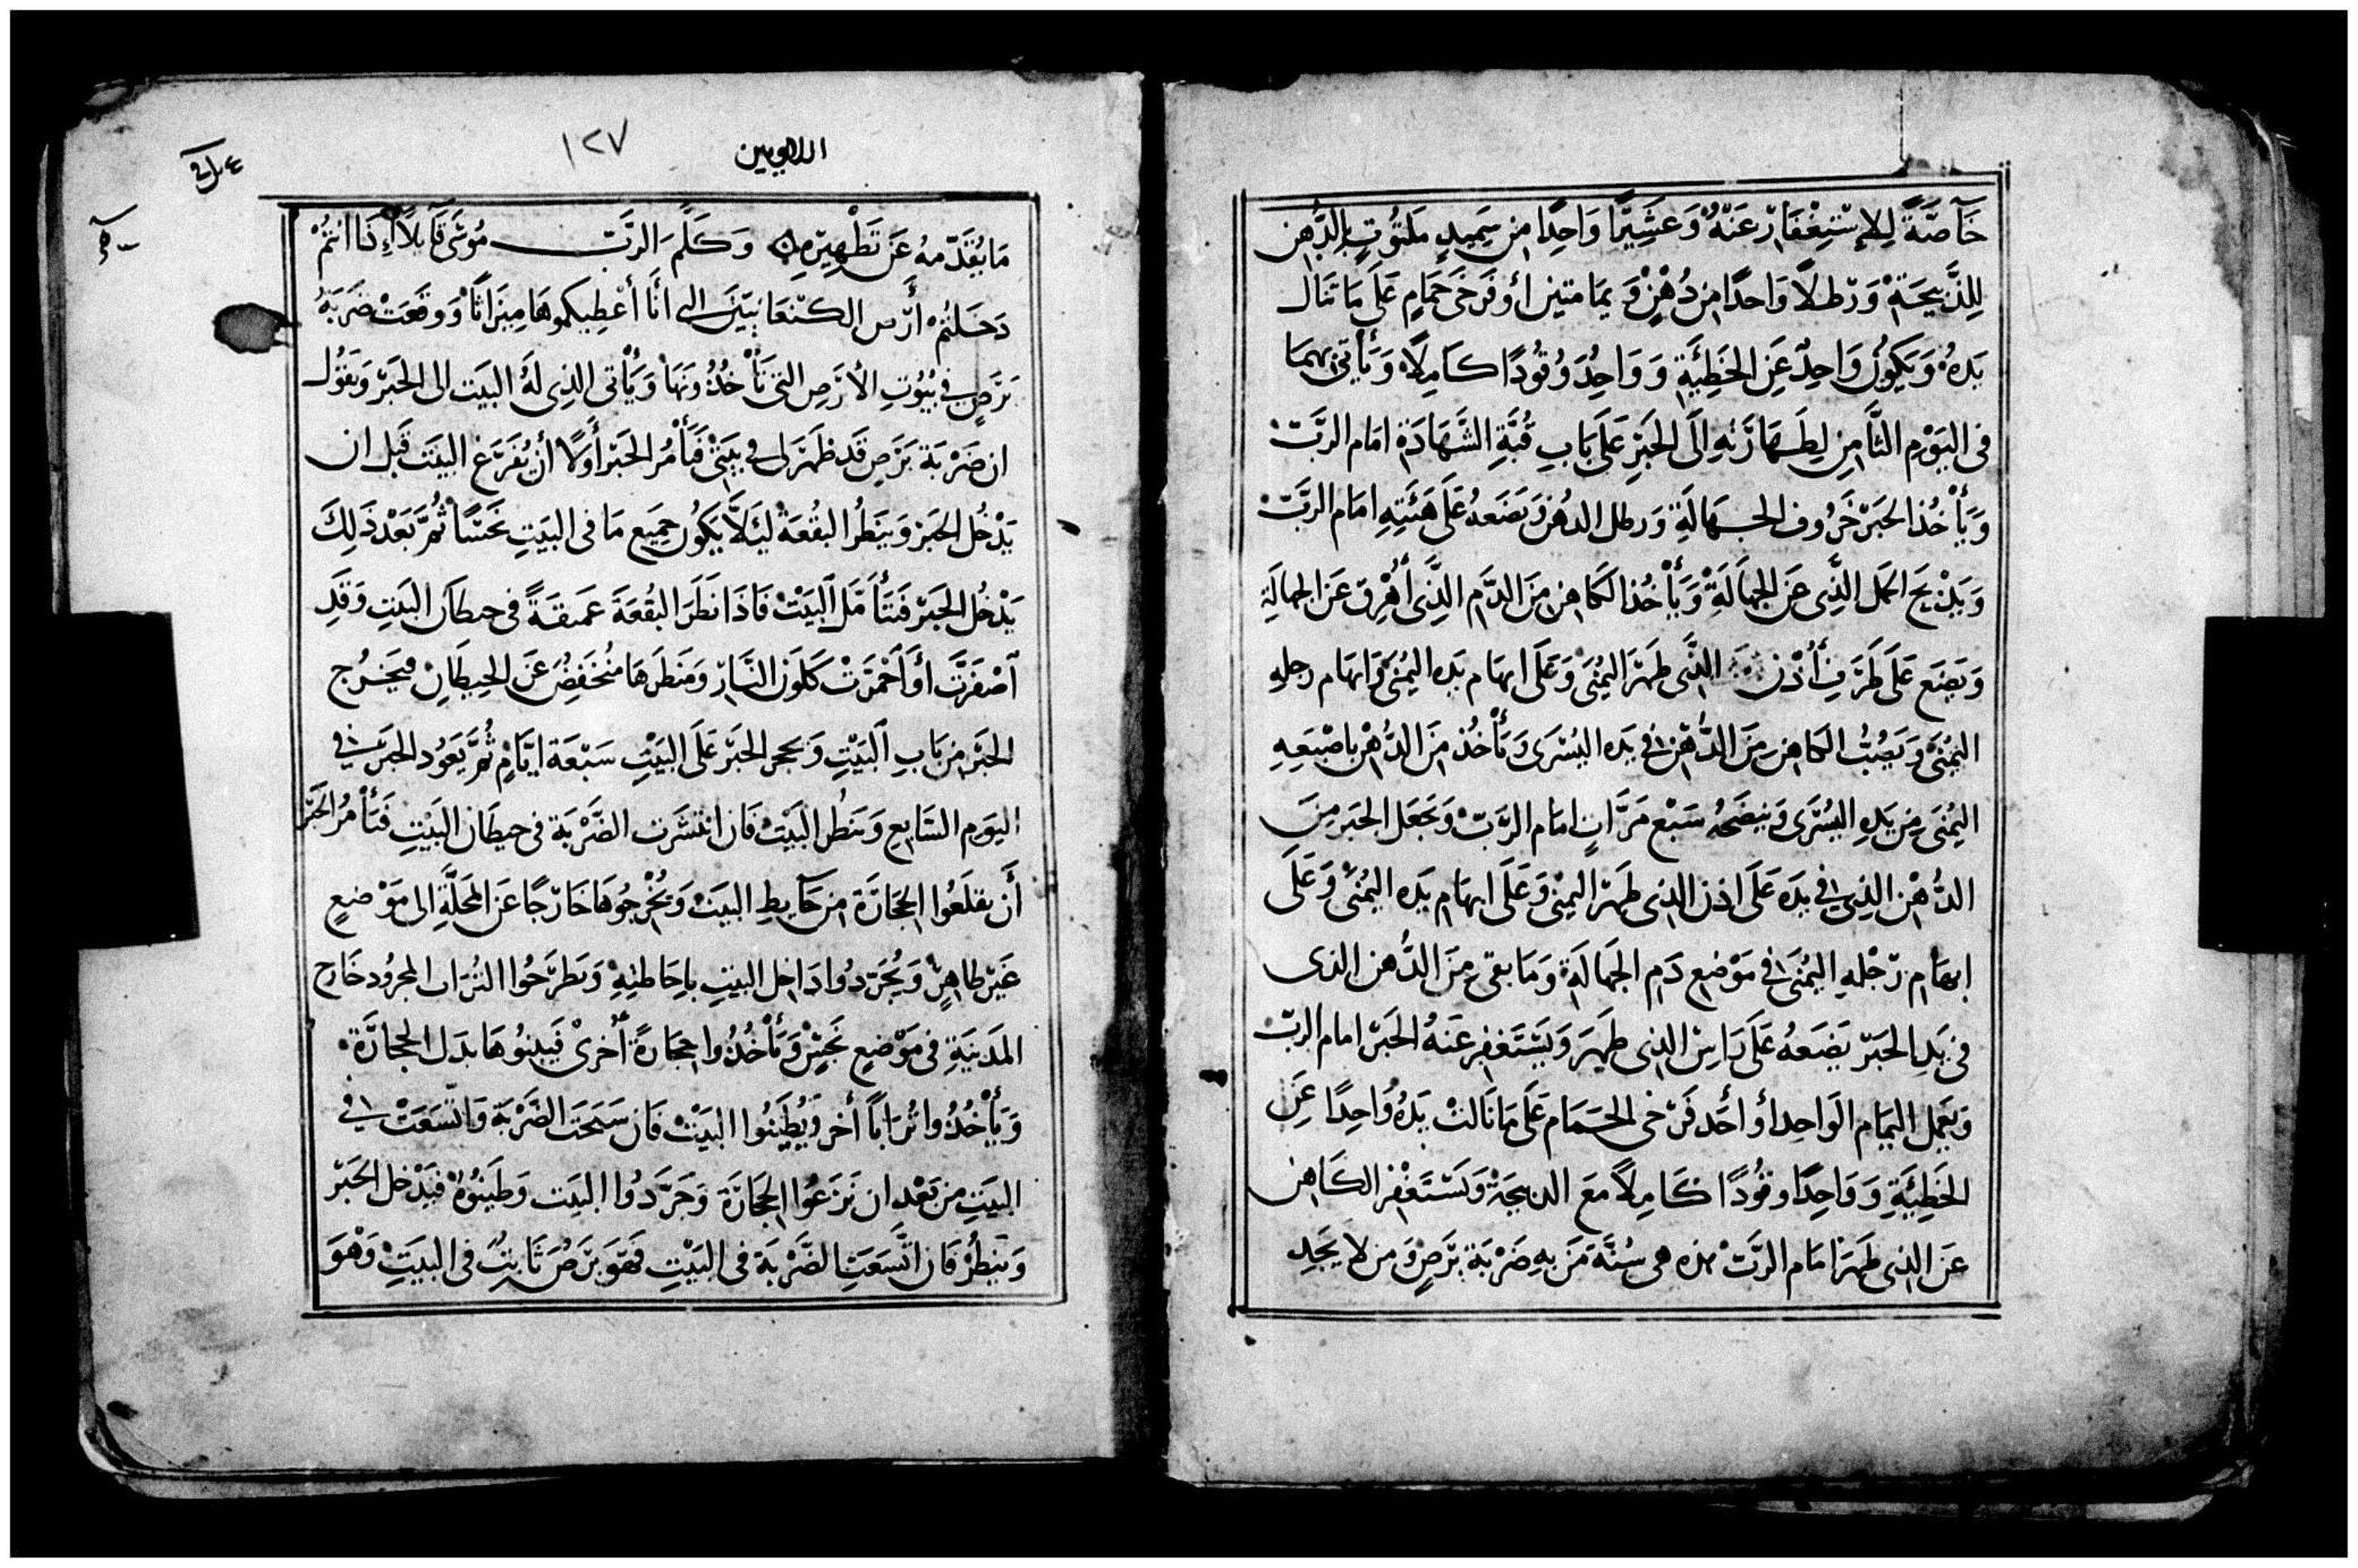 خَآصَّةً لِلإِسْتِغْفَارْ عَنْهُ وَعَشِيْرًا وَاحِدًا مِن سَمِيدٍ مَلتُوْتٍ بِالدُّهن
لِلذَّبِيحَةْ وَرطلاً وَاحدًا مِن دُهْنٍ وَيمَامتين أو فَرخَى حَمَامٍ عَلَى مَا تَنَال
يَدهُ وَيَكوُن وَاحِدٌ عَنِ الخَطِئَيةِ وَوَاحِدٌ وُقُودًا كَامِلاً وَيَأْتِى بِهمَا
فى اليَوْمِ الثَّامِنِ لِطَهَارَتهِ الَى الحَبْرِ عَلَى بَابِ قُبَّةِ الشَّهَادَةِ امَام الرَّبّ
وَيَأْخُذ الحَبْر خَرُوف الجهَالَةِ وَرطل الدهُن وَيَضَعهُ عَلَى هَيئَتِهِ امَام الرَّبّ
وَيَذْبَح الحمَل الذِّى عَن الجهَالَةْ وَيَأْخُذ الكَاهن مِنَ الدَّم الذَّى أُهْرِق عَن الجهالَةِ
وَيضَع عَلَى طَرَفِ أُذْن الذَّى طَهَر اليُمْنَى وَعَلَى ابهَام يَده اليُمْنَى وَابهَام رجلهِ
اليُمْنَى وَيَصُبُّ الكاهن مِنَ الدُّهْن فِى يَده اليُسْرَى وَيَأْخُذ مِنَ الدُّهْن باصْبَعِهِ
اليُمْنَى مِن يَدِهِ اليُسْرَى وَينضَحهُ سَبْع مَرَّاتٍ امَام الرَّبّ وَيَجْعَل الحَبر مِنَ
الدُّهْن الذِى فِى يَده عَلَى اذن الذى طَهَر اليمْنى وَعَلَى ابهَام يَده اليُمْنَى وَعَلَى
ابهَام رجْلهِ اليُمْنَى فِى مَوْضِع دَم الجَهالَةِ وَمَا بقى مِنَ الدُّهن الذى
فى يَدِ الحَبْرّ يَضَعهُ عَلَى رَاسْ الذِى طَهَر وَيَسْتَغفِر عَنهُ الحَبْر امام الربّ
وَيَعْمِل اليَمَام الوَاحِد أو أحَد فَرْخى الحَمَام عَلَى مَا نَالتْ يَدهُ وَاحِدًا عَنِ
الخَطِئَيةِ وَوَاحِدًا وقُودًا كَامِلاً مَعَ الذبيحَةْ وَيَسْتَغْفِر الكَاهن
عَن الذِى طَهَر امَام الرَّبّْ هذه هى سُنَّة مَن بهِ ضَرْبَة بَرَصٍ وَمن لا يَجد
اللاويين
١٢٧
مَا يُقَدّمهُ عَن تَطْهِيْرِهِ وَكَلَّمَ الرَّبّ مُوسَى قَآيلاً إِذَا انتُمْ
دَخَلتُمْ أرْض الكنْعَانيّيَن التى أنَا أعْطِيكموهَا مِيرَاثًا وَوَقَعَتْ ضَرَبَةُ
بَرَصٍ فِى بُيُوتِ الأرْضِ التِى تَأْخُذُونَهَا وَيَأْتى الذِى لهُ البَيت الى الحَبْرّ وَيَقوُل
ان ضَرْبَة بَرَصٍ قَد ظَهَرَ لى فى بَيتِى فَيَأْمُر الحَبْر أوَلاً أنْ يُفَرَغ البَيتَ قَبل ان
يَدْخُل الحَبْر وَيَنظُر البقُعَةْ ليَلاَّ يَكوُن جمِيَع مَا فى البَيتِ نَجَسًا ثُمَّ بَعْد ذَلِكَ
يَدْخُل الحَبْر فَيَتَأَمَّل البَيْتْ فَاذَا نَظَرَ البقُعَة عَميقَةً فى حيطَان البَيتِ وَقَدِ
آصْفَرَّتْ أوَ آحْمَرَتْ كَلَون النَّارِ وَمَنظَرهَا مُنْخَفِضٌ عَن الحِيطَانِ فيَخرُج
الحَبْر مِن بَابِ البَيْتِ وَيحجر الحَبْر عَلَى البَيْتِ سَبْعَة ايَّامٍ ثُمَّ يَعوُد الحَبْر فِى
اليَومِ السَّابِع وَينظُر البَيْتْ فَان انتشَرَت الضَّرْبَة فى حِيطَان البَيْتِ فَيَأْمُر الحَبْر
أن يقلَعُوا الحجَارَة مِن حَآيطِ البَيتْ وَيُخْرِجُوهَا خَارجًا عَن المحَلَّةِ الى مَوْضعٍ
غَيْر طَاهِرٍ وَيُجَرّدُوا دَاخِل البَيتِ باحَاطتِهِ وَيَطرَحُوا التُرَاب المجرُود خَارج
المَدينَةِ فى مَوْضِعٍ نَجِسٍ وَيَأْخُذُوا حجَارةً أُخرىْ فَيبنوُهَا بَدَل الحجَارَةْ
وَيَأْخُذُوا تُرَابًا أخر وَيُطيِنوُا البَيْتْ فَان سَبَحَت الضَرْبَة وَاتّسَعَتْ فِى
البَيتِ مِن بَعْد ان نَزَعُوا الحجَارَة وَجَرَّدُوا البَيت وَطَيَنوُهُ فيَدْخل الحَبْرّ
وَينظُرْ فَان اتَّسَعَتِ الضَرْبَة فى البَيْتِ فَهوَ بَرَصٌ ثَابتٌ فى البَيتِ وَهُوَ